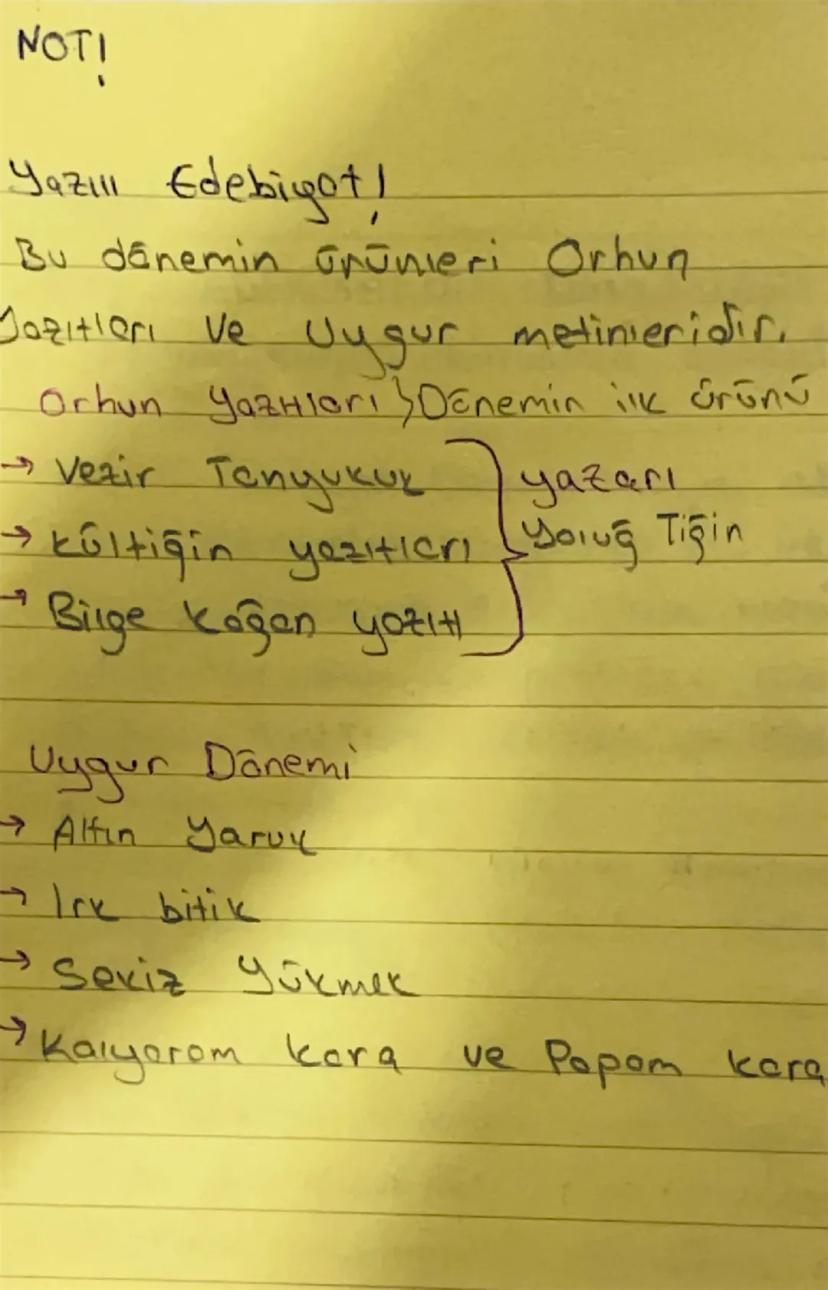 NOT!
Yazılı Edebiyat!
Bu dönemin ürünleri Orhun
Yazıtları ve Uygur metinleridir.
Orhun Yazıtları } Dönemin ilk ürünü
→ Vezir Tonyukuk
→ Kültiğin yazıtları } yazarı Yoluğ Tiğin
→ Bilge Kağan yazıtı
Uygur Dönemi
→ Altın Yaruk
→ Irk bitik
→ Sekiz Yükmek
→ Kalyoram kara ve Popam kara